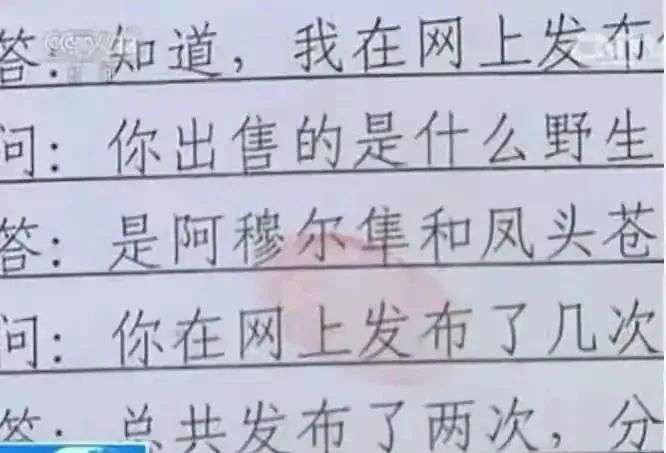 CCTV
答：知道，我在网上发布
问：你出售的是什么野生
答：是阿穆尔隼和凤头苍
问：你在网上发布了几次
答：总共发布了两次，分